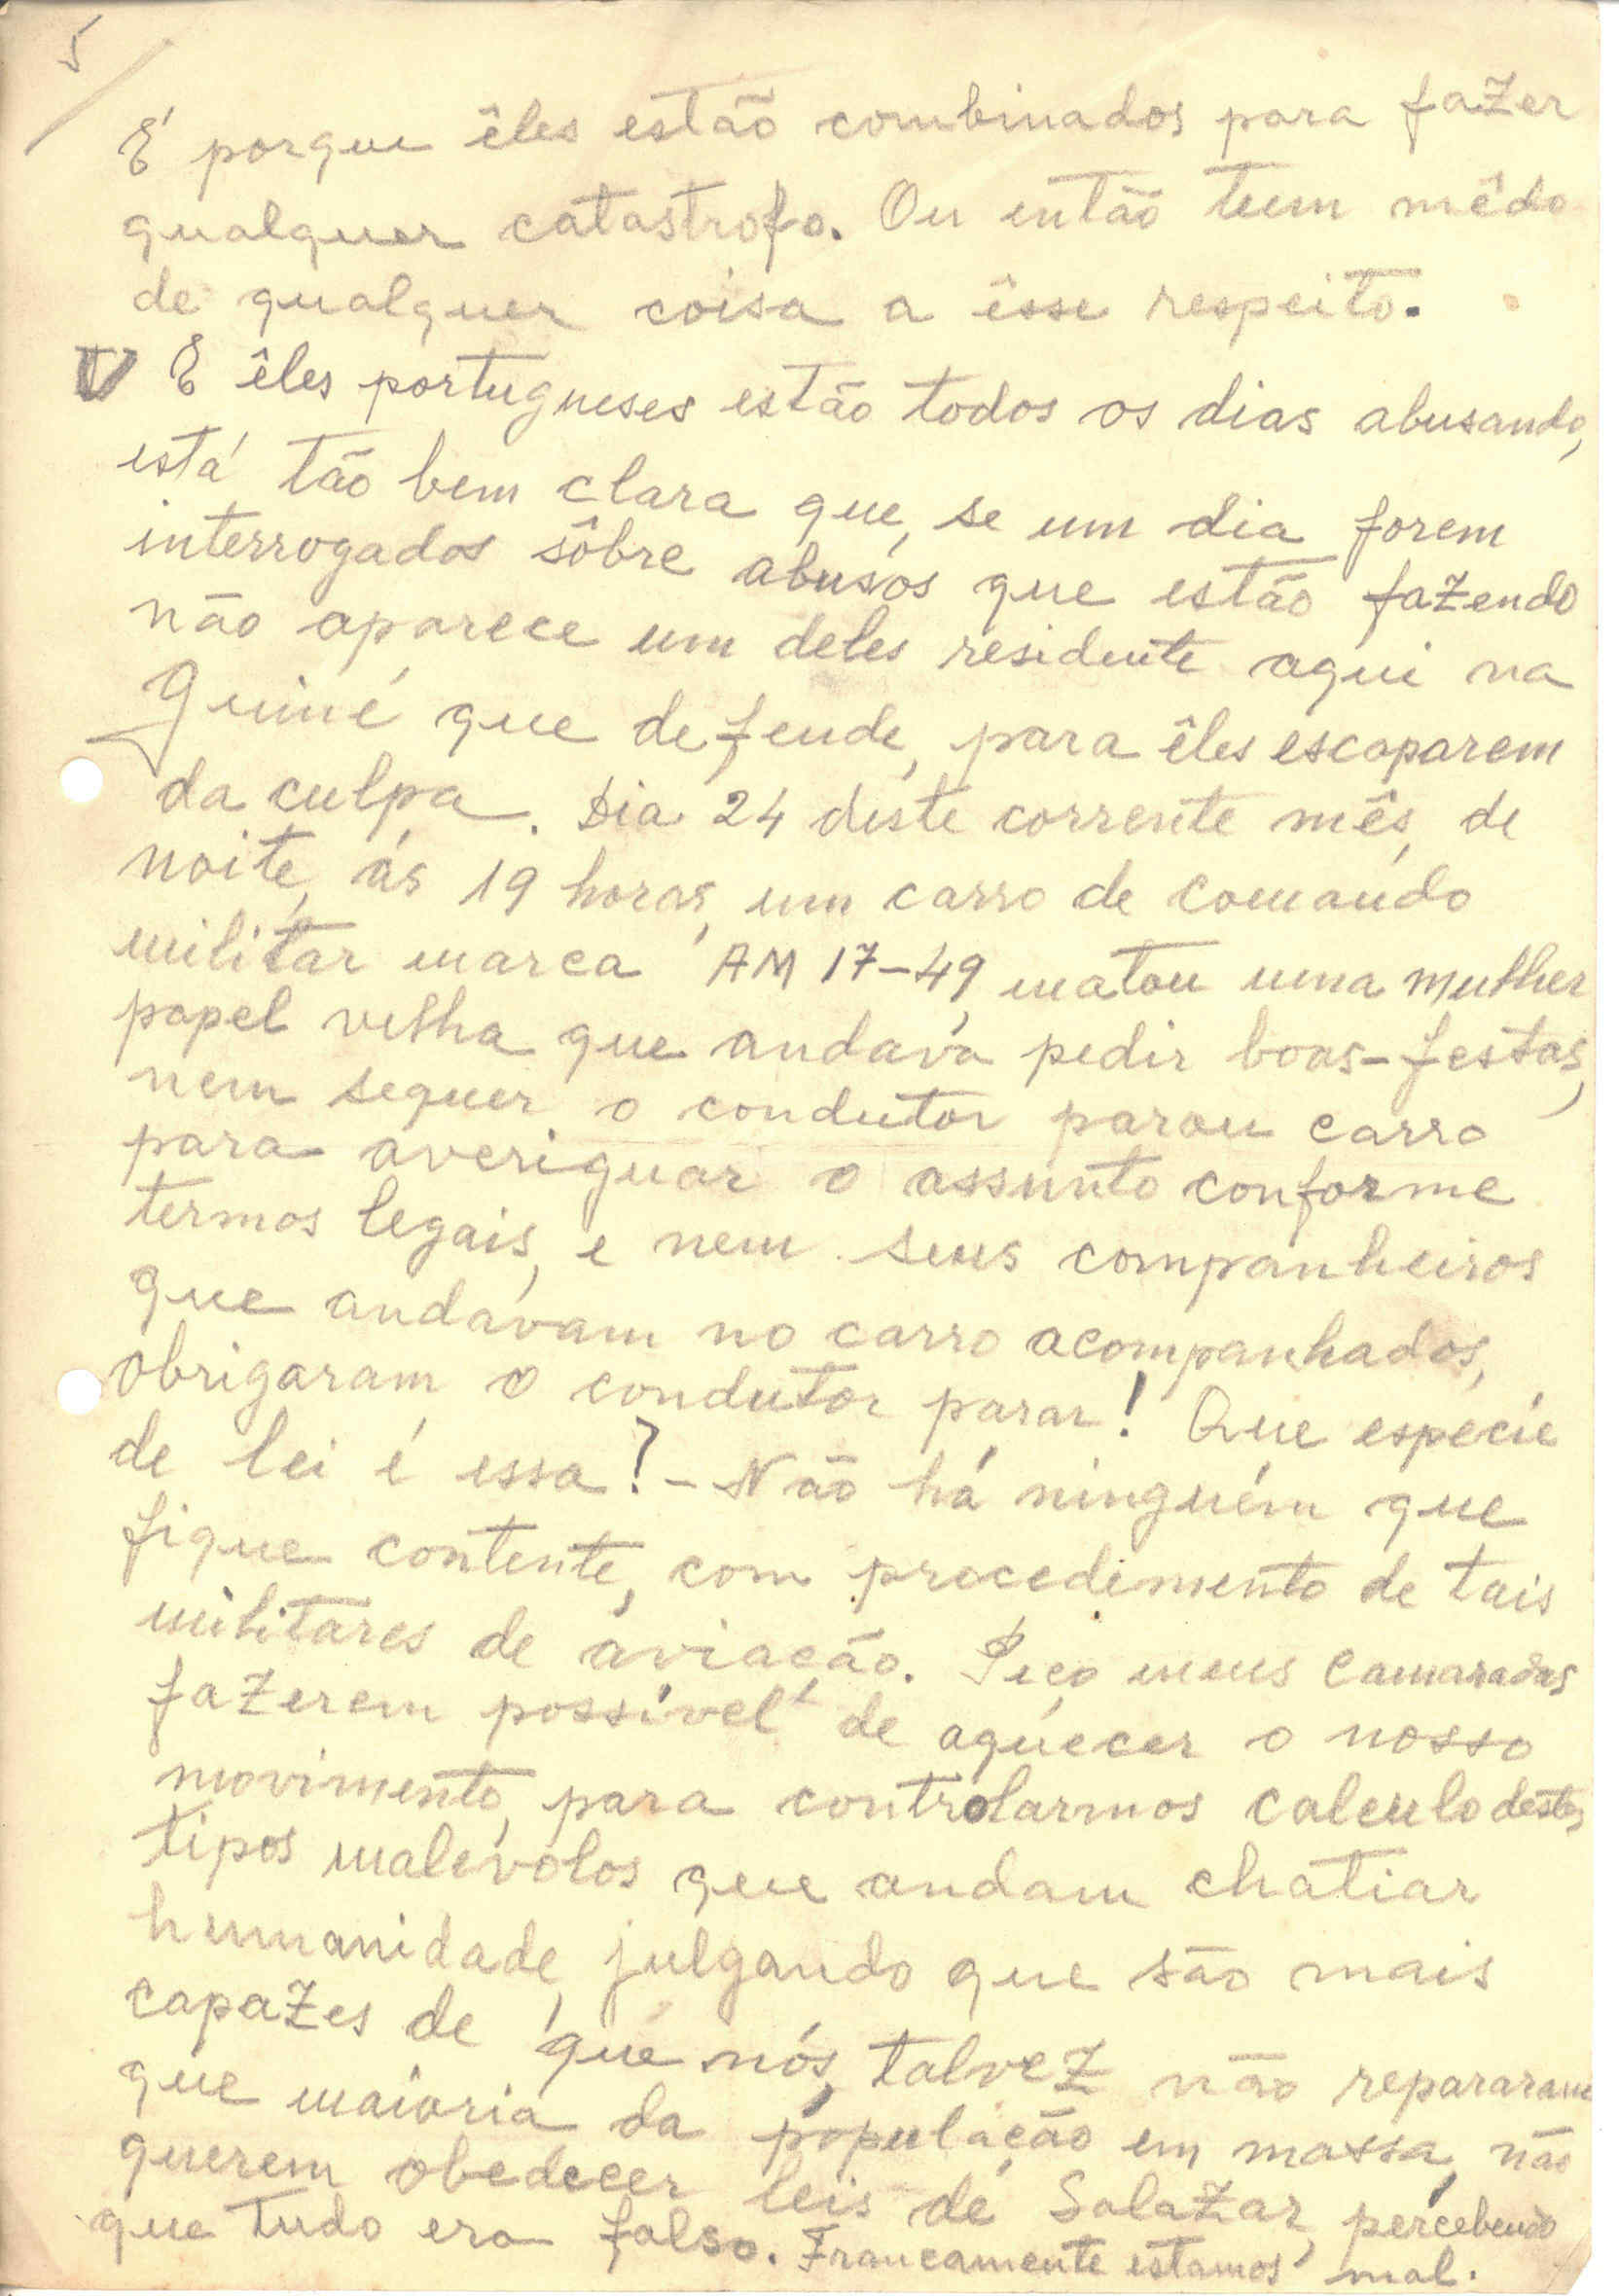 5
É porque êles estão combinados para fazer
qualquer catastrofo. Ou então teem mêdo
de qualquer coisa a êsse respeito.
V E êles portugueses estão todos os dias abusando,
está tão bem clara que, se um dia forem
interrogados sôbre abusos que estão fazendo
não aparece um deles residente aqui na
Guiné que defende, para êles escaparem
da culpa. Dia 24 deste corrente mês, de
noite, ás 19 horas, um carro de comando
militar marca AM 17-49, matou uma mulher
papel velha que andava pedir boas-festas,
nem sequer o condutor parou carro
para averiguar o assunto conforme
termos legais, e nem seus companheiros
que andavam no carro acompanhados,
obrigaram o condutor parar! Que especie
de lei é essa? - Não há ninguém que
fique contente, com procedimento de tais
militares de aviação. Peço meus camaradas
fazerem possível de aquecer o nosso
movimento, para controlarmos calculo destes
tipos malevolos que andam chatiar
humanidade, julgando que são mais
capazes de que nós, talvez não repararam
que maioria da população em massa, não
querem obedecer leis de Salazar, percebendo
que tudo era falso. Francamente estamos mal.